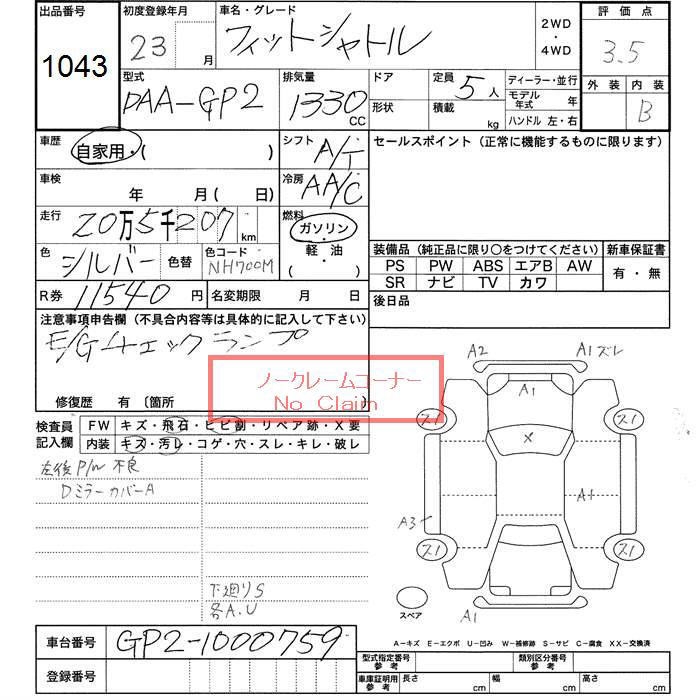 出品番号 1043
初度登録年月 23 月
車名・グレード フィットシャトル
2WD ・ 4WD
評価点 3.5
外装 内装 B
型式 DAA-GP2
排気量 1330 CC
ドア
形状
定員 5 人
積載 kg
ディーラー・並行
モデル年式 年
ハンドル 左・右
車歴 自家用・( )
シフト A/T
セールスポイント (正常に機能するものに限ります)
車検 年 月( 日)
冷房 AA/C
走行 20万5千207 km
燃料 ガソリン・軽油 ( )
色 シルバー 色替
色コード NH700M
装備品 (純正品に限り○をつけてください) 新車保証書
PS PW ABS エアB AW
SR ナビ TV カワ
有・無
R券 11540 円 名変期限 月 日
後日品
注意事項申告欄 (不具合内容等は具体的に記入して下さい)
E/Gチェックランプ
修復歴 有 〔箇所
ノークレームコーナー
No Claim
検査員記入欄
FW キズ・飛石・ヒビ割・リペア跡・X要
内装 キズ・汚レ・コゲ・穴・スレ・キレ・破レ
左後P/W 不良
DミラーカバーA
下廻りS
各A.U
A2 A1ズレ
A1
ス1 ス1
X
A1
A3
ス1 ス1
スペア
A1
A-キズ E-エクボ U-凹み W-補修跡 S-サビ C-腐食 XX-交換済
車台番号 GP2-1000759
登録番号
型式指定番号 参考 類別区分番号 参考
車庫証明用 参考 長さ cm 幅 cm 高さ cm